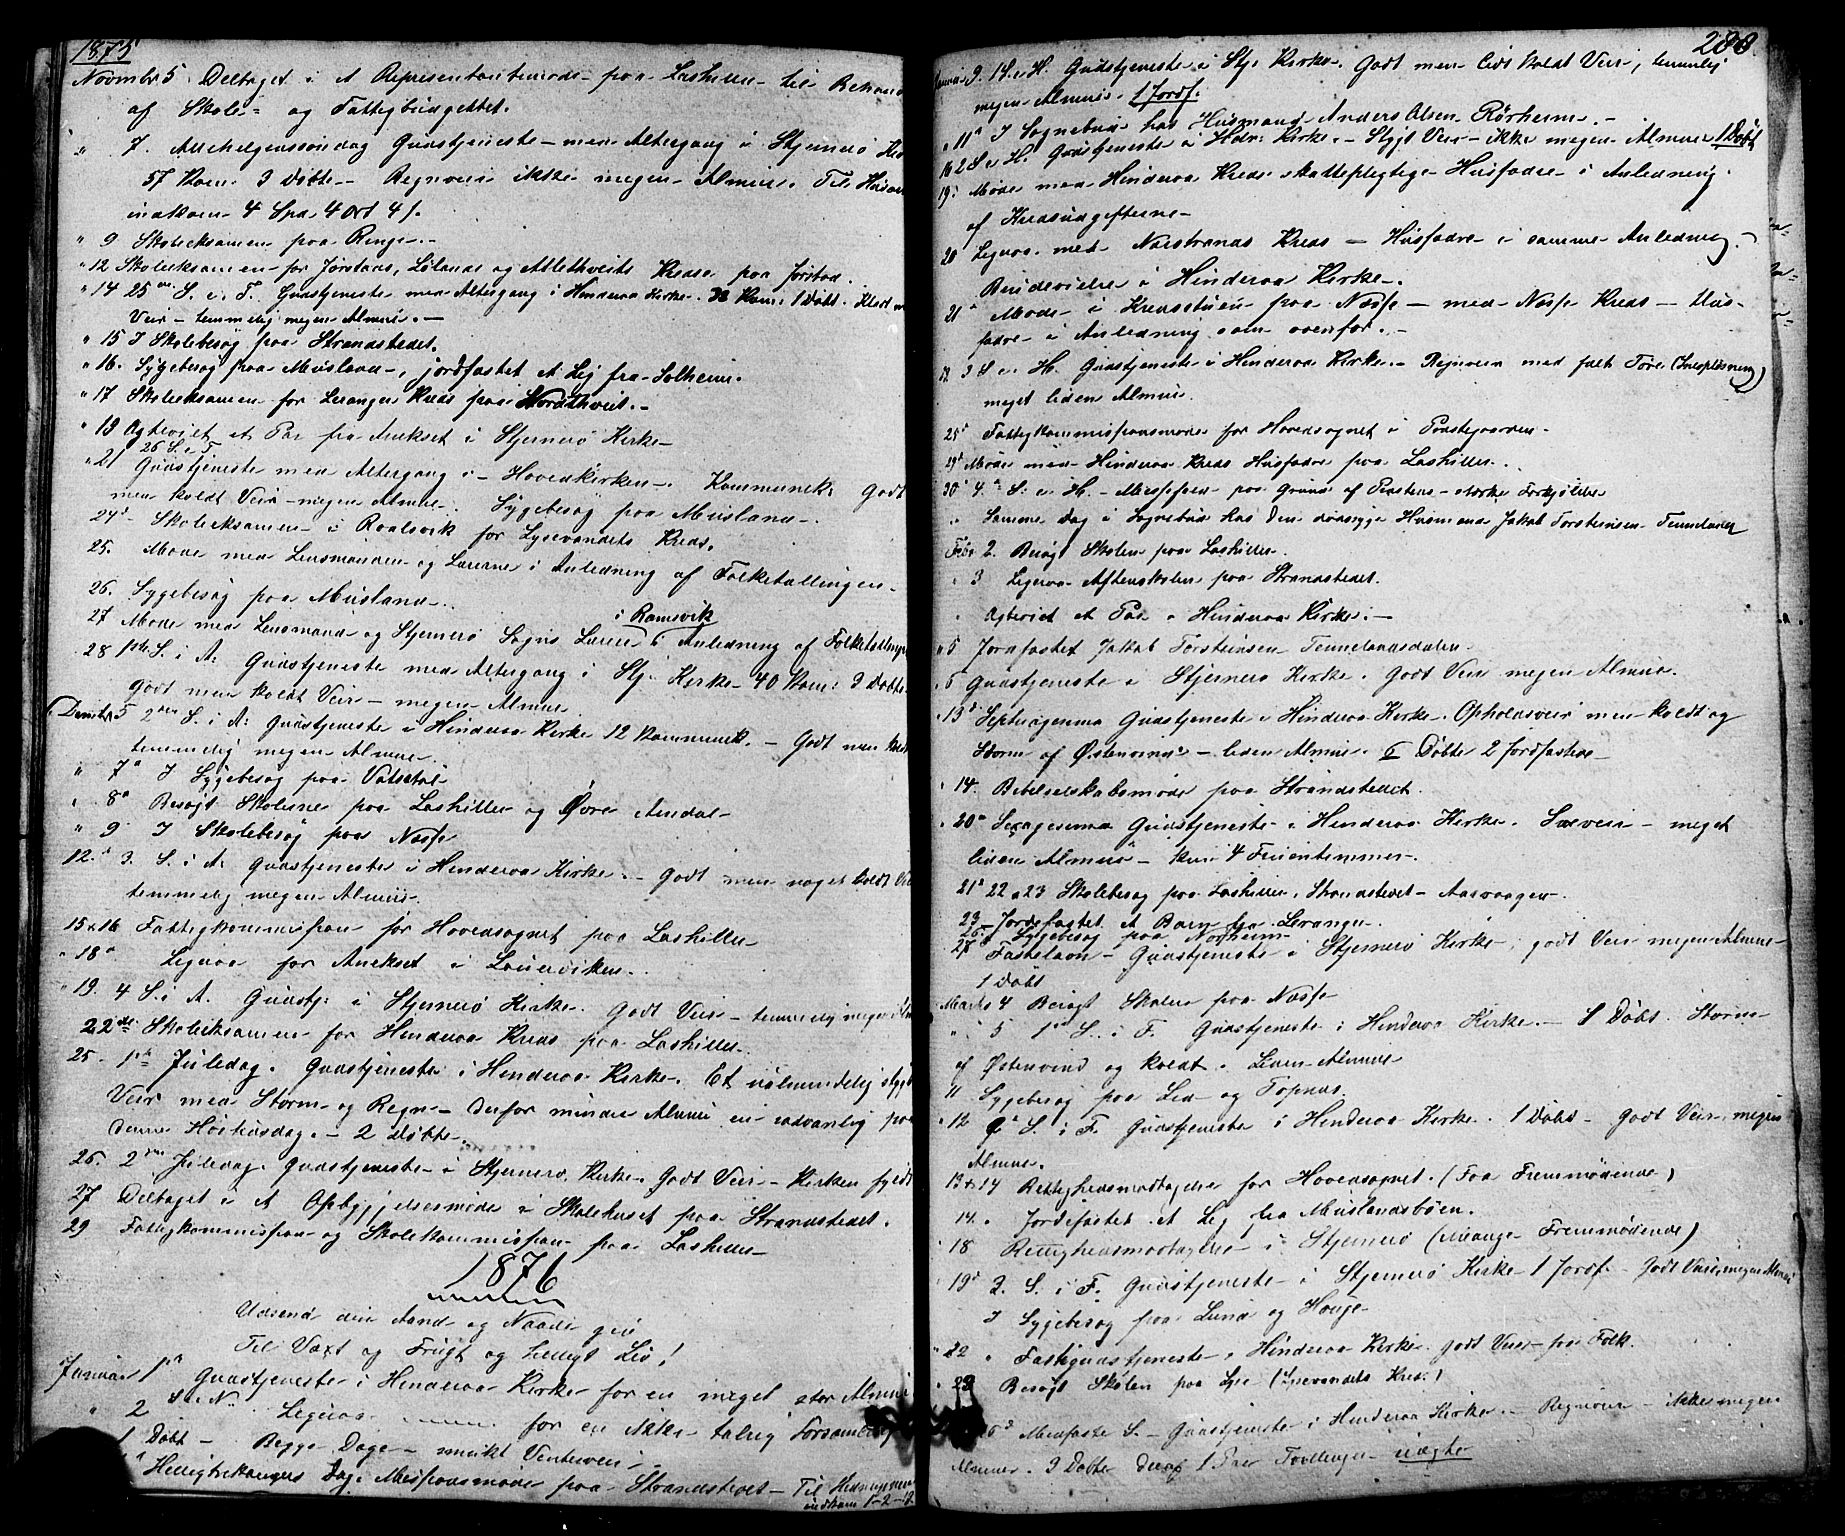 1875
Novmbr 5 Deltaget i et Representantmøde paa Lashiller til Behand
af Skole- og Fattigbudgettet.
" 7. Allehelgenssøndag Gudstjeneste med Altergang i Stjernerø Kir
57 Kom: 3 Døbte Regnveir ikke megen Almue. Til
indkom 4 Spd 4 ort 4 ſ.
" 9 Skoleeksamen paa Ringe.
" 12 Skoleeksamen for Jørstads, Lølands og Kreds paa Jørstad.
" 14 25de S. e. T. Gudstjeneste med Altergang i Hinderaa Kirke. 38 Kom: 1 Døbt. Klart
Veir temmelig megen Almue.
" 15 I Skolebesøg paa Strandstedet.
" 16. Sygebesøg paa Musland, jordfæstet et Lig fra Solheim.
" 17 Skoleeksamen for Leranger Kreds paa Nordthveit.
" 19 Ægteviet et Par fra Anekset i Stjernerø Kirke
26 S. e. T
" 21 Gudstjeneste med Altergang i Hovedkirken. Kommunik: Godt
men koldt Veir megen Almue. Sygebesøg paa Musland.
24d Skoleeksamen i Roalsvik for Lysevandets Kreds.
25. Møde med Lensmanden og Lærerne i Anledning af Folketællingen.
26. Sygebesøg paa Musland.
i Ramsvik
27 Møde med Lensmand og Stjernerø Sogns Lærere i Anledning af Folketællingen
28 1ste S. i A: Gudstjeneste med Altergang i Stj. Kirke 40 Kom: 3 Døbte
Godt men koldt Veir megen Almue
Decmbr 5 2den S. i A: Gudstjeneste i Hinderaa Kirke 12 Kommunik. Godt men koldt
temmelig megen Almue
" 7d I Sygebesøg paa Vatsetal
" 8d Besøgt Skolerne paa Lashiller og Øvre Amdal
" 9 I Skolebesøg paa Næsse
12.d 3. S. i A. Gudstjeneste i Hinderaa Kirke. Godt men noget koldt Ve
temmelig megen Almue.
15 & 16 Fattigkommission for Hovedsognet paa Lashiller
" 18d Ligesaa for Anekset i Lauerviken.
" 19. 4 S. i A. Gudstj: i Stjernerø Kirke. Godt Veir temmelig megen Al
22de Skoleeksamen for Hinderaa Kreds paa Lashiller.
25. 1ste Juledag. Gudstjeneste i Hinderaa Kirke. Et ualmindelig stygt
Veir med Storm og Regn derfor mindre Almue en sædvanlig paa
denne Høitidsdag. 2 Døbte.
26. 2den Juledag. Gudstjeneste i Stjernerø Kirke. Godt Veir Kirken fyldt
27 Deltaget i et Opbyggelsesmøde i Skolehuset paa Strandstedet.
29 Fattigkommission og Skolekommission paa Lashiller
1876
Udsend din Aand og Naade giv
Til Vext og Frugt og helligt Liv!
Januar 1d Gudstjeneste i Hinderaa Kirke for en meget stor Almue
" 2 S. e. N. Ligesaa for en ikke talrig Forsamling
1 Døbt Begge Dage smukt Vinterveir.
Helligtrekongers Dag. Missionsmøde paa Strandstedet Til Hedningerne
indkom 1-2-12
288
Januar 9. 1 S. e. H. Gudstjeneste i Stj. Kirke. Godt men lidt koldt Veir, temmelig
megen Almue. 1 Jordf.
" 11d I Sognebud hos Husmand Anders Olsen Rørheim.
16 2 S. e. H. Gudstjeneste i Hdr. Kirke. Stygt Veir ikke megen Almue 1 Døbt
19. Møde med Hinderaa Kreds skattepligtige Husfædre i Anledning
af Kredsudgifterne
20 Ligesaa med Nærstrands Kreds Husfædre i samme Anledning.
Brudevielse i Hinderaa Kirke.
21d Møde i Kredsstuen paa Næsse med Næsse Kreds Hus-
fædre i Anledning som ovenfor.
3 S. e. H. Gudstjeneste i Hinderaa Kirke. Regnveir med fælt Føre (Sneopløsning)
meget liden Almue.
25d Fattigkommissionsmøde for Hovedsognet i Præstegaarden.
29d Møde med Hinderaa Kreds Husfædre paa Lashiller.
30d 4. S. e. H. Messefald paa Grund af Præstens stærke Forkjølelse
" Samme Dag i Sognebud hos den dødssyge Husmand Jakob Torsteinsen Tennelandsd
Febr 2. Besøgt Skolen paa Lashiller.
" 3 Ligesaa Aftenskolen paa Strandstedet.
" Ægteviet et Par i Hinderaa Kirke.
" 5 Jordfæstet Jakob Torsteinsen Tennelandsdalen.
" 6 Gudstjeneste i Stjernerø Kirke. Godt Veir megen Almue.
" 13d Septuagesima Gudstjeneste i Hinderaa Kirke. Opholdsveir men koldt og
Storm af Østenvind liden Almue. Døbte 2 Jordfæstede
" 14. Bibelselskabsmøde paa Strandstedet.
" 20d Sexagesima Gudstjeneste i Hinderaa Kirke. Sneveir meget
liden Almue kun 4 Fruentimmer.
21d 22 & 23 Skolebesøg paa Lashiller, Strandstedet Aasvaagen.
23 Jordfæstet et Barn fra Leranger
26 Sygebesøg paa Norheim
27d Fastelavn Gudstjeneste i Stjernerø Kirke, godt Veir megen Almue
1 Døbt
Marts 4 Besøgt Skolen paa Næsse
" 5 1d S. i F. Gudstjeneste i Hinderaa Kirke. 1 Døbt. Storm
af Østenvind og koldt. Liden Almue
" 11 Sygebesøg paa Lid og Topnæs.
" 12 2d S. i F. Gudstjeneste i Hinderaa Kirke. 1 Døbt Godt Veir, megen
Almue.
13 & 14 Rettighedsmodtagelse for Hovedsognet. (Faa Fremmødende)
14. " Jordfæstet et Lig fra Muslandsbøen.
" 18 Rettighedsmodtagelse i Stjernerø (mange Fremmødende)
" 19d 3. S. i F. Gudstjeneste i Stjernerø Kirke 1 Jordf. Godt Veir, megen Almue
I Sygebesøg paa Lund og Houge
" 22 " Fastegudstjeneste i Hinderaa Kirke. godt Veir faa Folk.
" 23 Besøgt Skolen paa Lye (Lysevandets Kreds)
Midfaste S. Gudstjeneste i Hinderaa Kirke. Regnveir ikke megen
Almue. 3 Døbte deraf 1 Par Tvillinger uægte